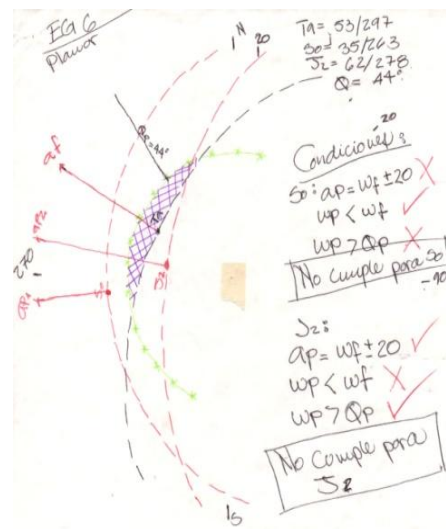 EG 6
planar
N
20
Ta = 53/297
So = 35/263
J2 = 62/278
Q = 44°
Qp=44°
af
ap2
270
ap1
Ta
So
J2
S
20
Condiciones:
So: ap = wf ± 20 X
wp < wf ✓
wp > Qp X
No cumple para So
-90
J2:
ap = wf ± 20 ✓
wp < wf X
wp > Qp ✓
No cumple para
J2